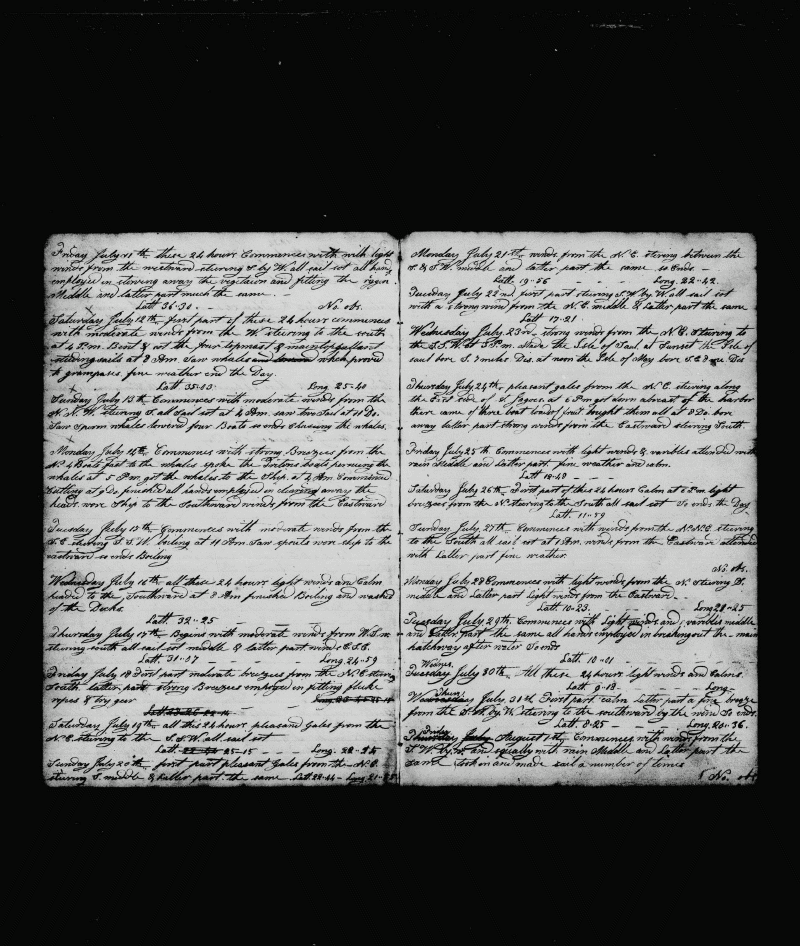 Friday July 11th these 24 hours Commences with with light
winds from the westward stearing S by W. all sail set all hands
employed in stowing away the vegitaun and fitting the riggin
Meddle and latter part much the same. —
Latt 36-31. No. obs.
Saturday July 12th first part of these 24 hours commences
with moderate winds from the W stearing to the south
at 4 P.m. Bent & set the four topmast & maintopgallant
studing sails at 8 Am. Saw whales and lowered which proved
to grampases. fine weather end the Day.
Latt 35-03 Long 25-40
Sunday July 13th Commences with moderate winds from the
N.N.W. stearing S. all Sail set at 4 Am. saw two Sail at 11 Do.
Saw Sparm whales lowered four Boats so ends Chassing the whales.
Monday July 14th Commences with strong Breezes from the
N. 4 Boats fast to the whales spoke the boats persueing the
whales at 5 P.m. got the whales to the Ship. at 4 Am Commenced
Cutting at 9 Do finished all hands employed in clearing away the
heads. wore Ship to the Southward winds from the Eastward
Tuesday July 15th Commences with moderate winds from the
S.E. stearing S.S.W. boiling at 11 Am. Saw spouts wore ship to the
eastward so ends Boiling
Wednesday July 16th all these 24 hours light winds and Calm
headed to the Southward at 8 Am finished Boiling and washed
of the Decks
Latt. 32-25 — — — —
Thursday July 17th Begins with moderate winds from W.S.W.
stearing south all sail set middle & latter part winds E.S.E.
Latt. 31-07 — — — Long 24-59
Friday July 18 First part moderate breezes from the N.E. stearing
South. latter part strong Breezes employed in fitting fluke
ropes & try gear
Saturday July 19th all this 24 hours pleasand Gales from the
N.E. stearing to the S.S.W. all sail set
Latt. 25-15 — — — Long. 22-34
Sunday July 20th first part pleasant Gales from the N.E.
stearing S. middle & latter part the same Latt 22-44 — Long 21-
Monday July 21st winds from the N.E. stearing between the
S. & S.W. middle and latter part the same so Ends —
Latt. 19-56 — — — Long. 22-42.
Tuesday July 22nd. first part stearing S.W. by W. all sail set
with a strong wind from the N.E. middle & Latter part the same
Latt. 17-21
Wednesday July 23rd. strong winds from the N.E. Stearing to
the S.S.W. to S P.m. Made the Isle of Saul at Sunset the Isle of
saul bore S. 7 miles Dis. at noon the Isle of May bore S.E. 8 Dis
Thursday July 24th. pleasant gales from the N.E. stearing along
the East End of St Jagoes. at 6 P.m got down abreast of the harbor
there came of three boat loads of fruit bought them all at 8 Do. bore
away latter part strong winds from the Eastward stearing South
Friday July 25th Commences with light winds & varibles attended with
rain Meddle and latter part. fine weather and calm.
Latt 12-49 — — — —
Saturday July 26th. First part of this 24 hours Calm at 6 P.m light
breezes from the N. stearing to the South all sail set So ends the Day.
Latt. 11-59
Sunday July 27th. Commences with winds from the N.N.E. stearing
to the South all sail set at 1 Am. winds from the Eastward attended
with Latter part fine weather.
No. obs.
Monday July 28 Commences with light winds from the N. Stearing S.
meddle and Latter part Light winds from the Eastward. —
Latt. 10-23. — — — Long 20-25
Tuesday July 29th. Commences with Light winds and variables middle
and Latter part the same all hands employed in breaking out the main
hatchway after water So ends
Latt. 10-01 —
Wednes.
Tuesday July 30th. All these 24 hours light winds and Calms.
Latt. 9-13 — — Long —
Thurs.
Wednesday July 31st First part calm latter part a fine breeze
from the S.W. by W. stearing to the southward by the wind So ends.
Latt. 8-25 — — — Long. 20-36.
Friday
Thursday July August 1st. Commences with winds from the
S.W. by W. and squally with rain Meddle and Latter part the
same took in and made sail a number of times
No. obs